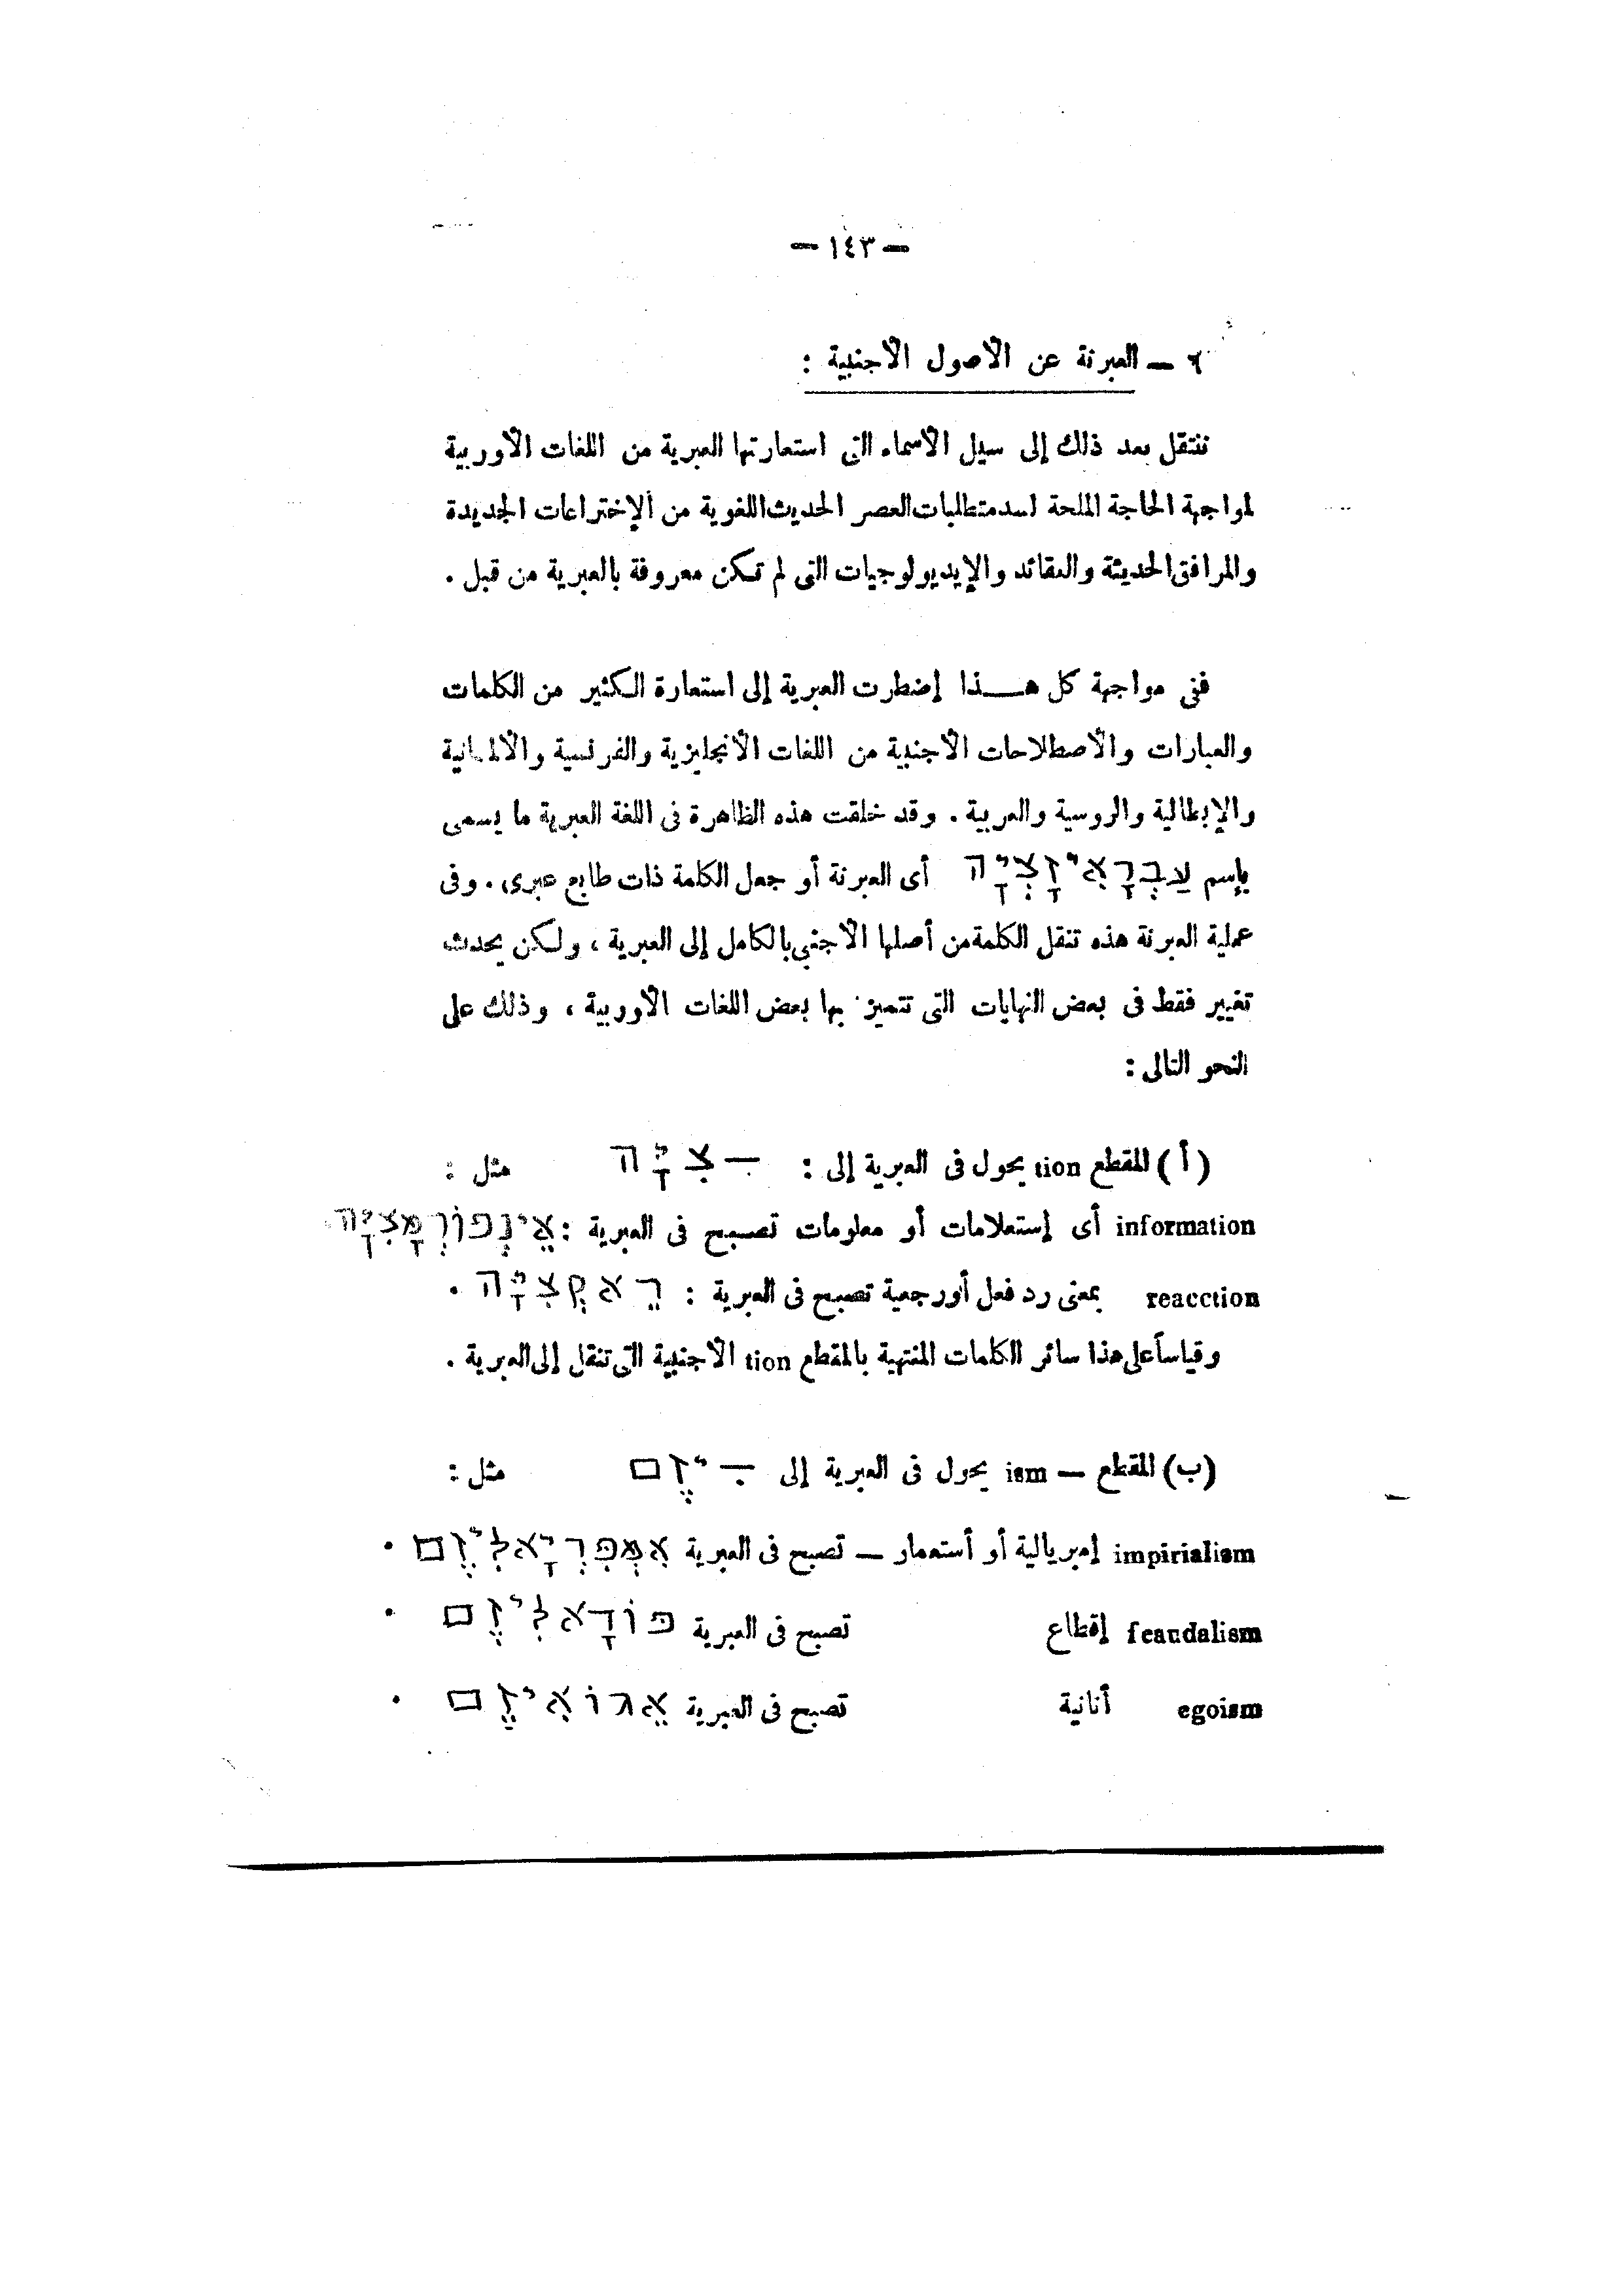 — ١٤٣ —
٢ — العبرنة عن الأصول الأجنبية :
ننتقل بعد ذلك إلى سيل الأسماء التى استعارتها العبرية من اللغات الأوربية
لمواجهة الحاجة الملحة لسد متطلبات العصر الحديث اللغوية من الإختراعات الجديدة
والمرافق الحديثة والعقائد والإيديولوجيات التى لم تكن معروفة بالعبرية من قبل .
فنى مواجهة كل هــذا إضطرت العبرية إلى استعارة الكثير من الكلمات
والعبارات والأصطلاحات الأجنبية من اللغات الأنجليزية والفرنسية والألمانية
والإيطالية والروسية والعربية . وقد خلقت هذه الظاهرة فى اللغة العبرية ما يسمى
بإسم עַבְרָאִיזָצְיָה أى العبرنة أو جعل الكلمة ذات طابع عبرى . وفى
عملية العبرنة هذه تنقل الكلمة من أصلها الأجنبى بالكامل إلى العبرية ، ولكن يحدث
تغيير فقط فى بعض النهايات التى تتميز بها بعض اللغات الأوربية ، وذلك على
النحو التالى :
( أ ) المقطع tion يحول فى العبرية إلى : — ִצִיָּה مثل :
information أى إستعلامات أو معلومات تصبح فى العبرية : אֱינְפוֹרְמָצִיָּה
reacction بمعنى رد فعل أو رجعية تصبح فى العبرية : רֱאַקְצִיָּה .
وقياساً على هذا سائر الكلمات المنتهية بالمقطع tion الأجنبية التى تنقل إلى العبرية .
(ب) المقطع — ism يحول فى العبرية إلى — ִיזֱם مثل :
impirialism إمبريالية أو أستعمار — تصبح فى العبرية אִמְפִּרְיָאלִיזֱם .
feaudalism إقطاع تصبح فى العبرية פוֹדָאלִיזֱם .
egoism أنانية تصبح فى العبرية אֱגוֹאִיזֱם .